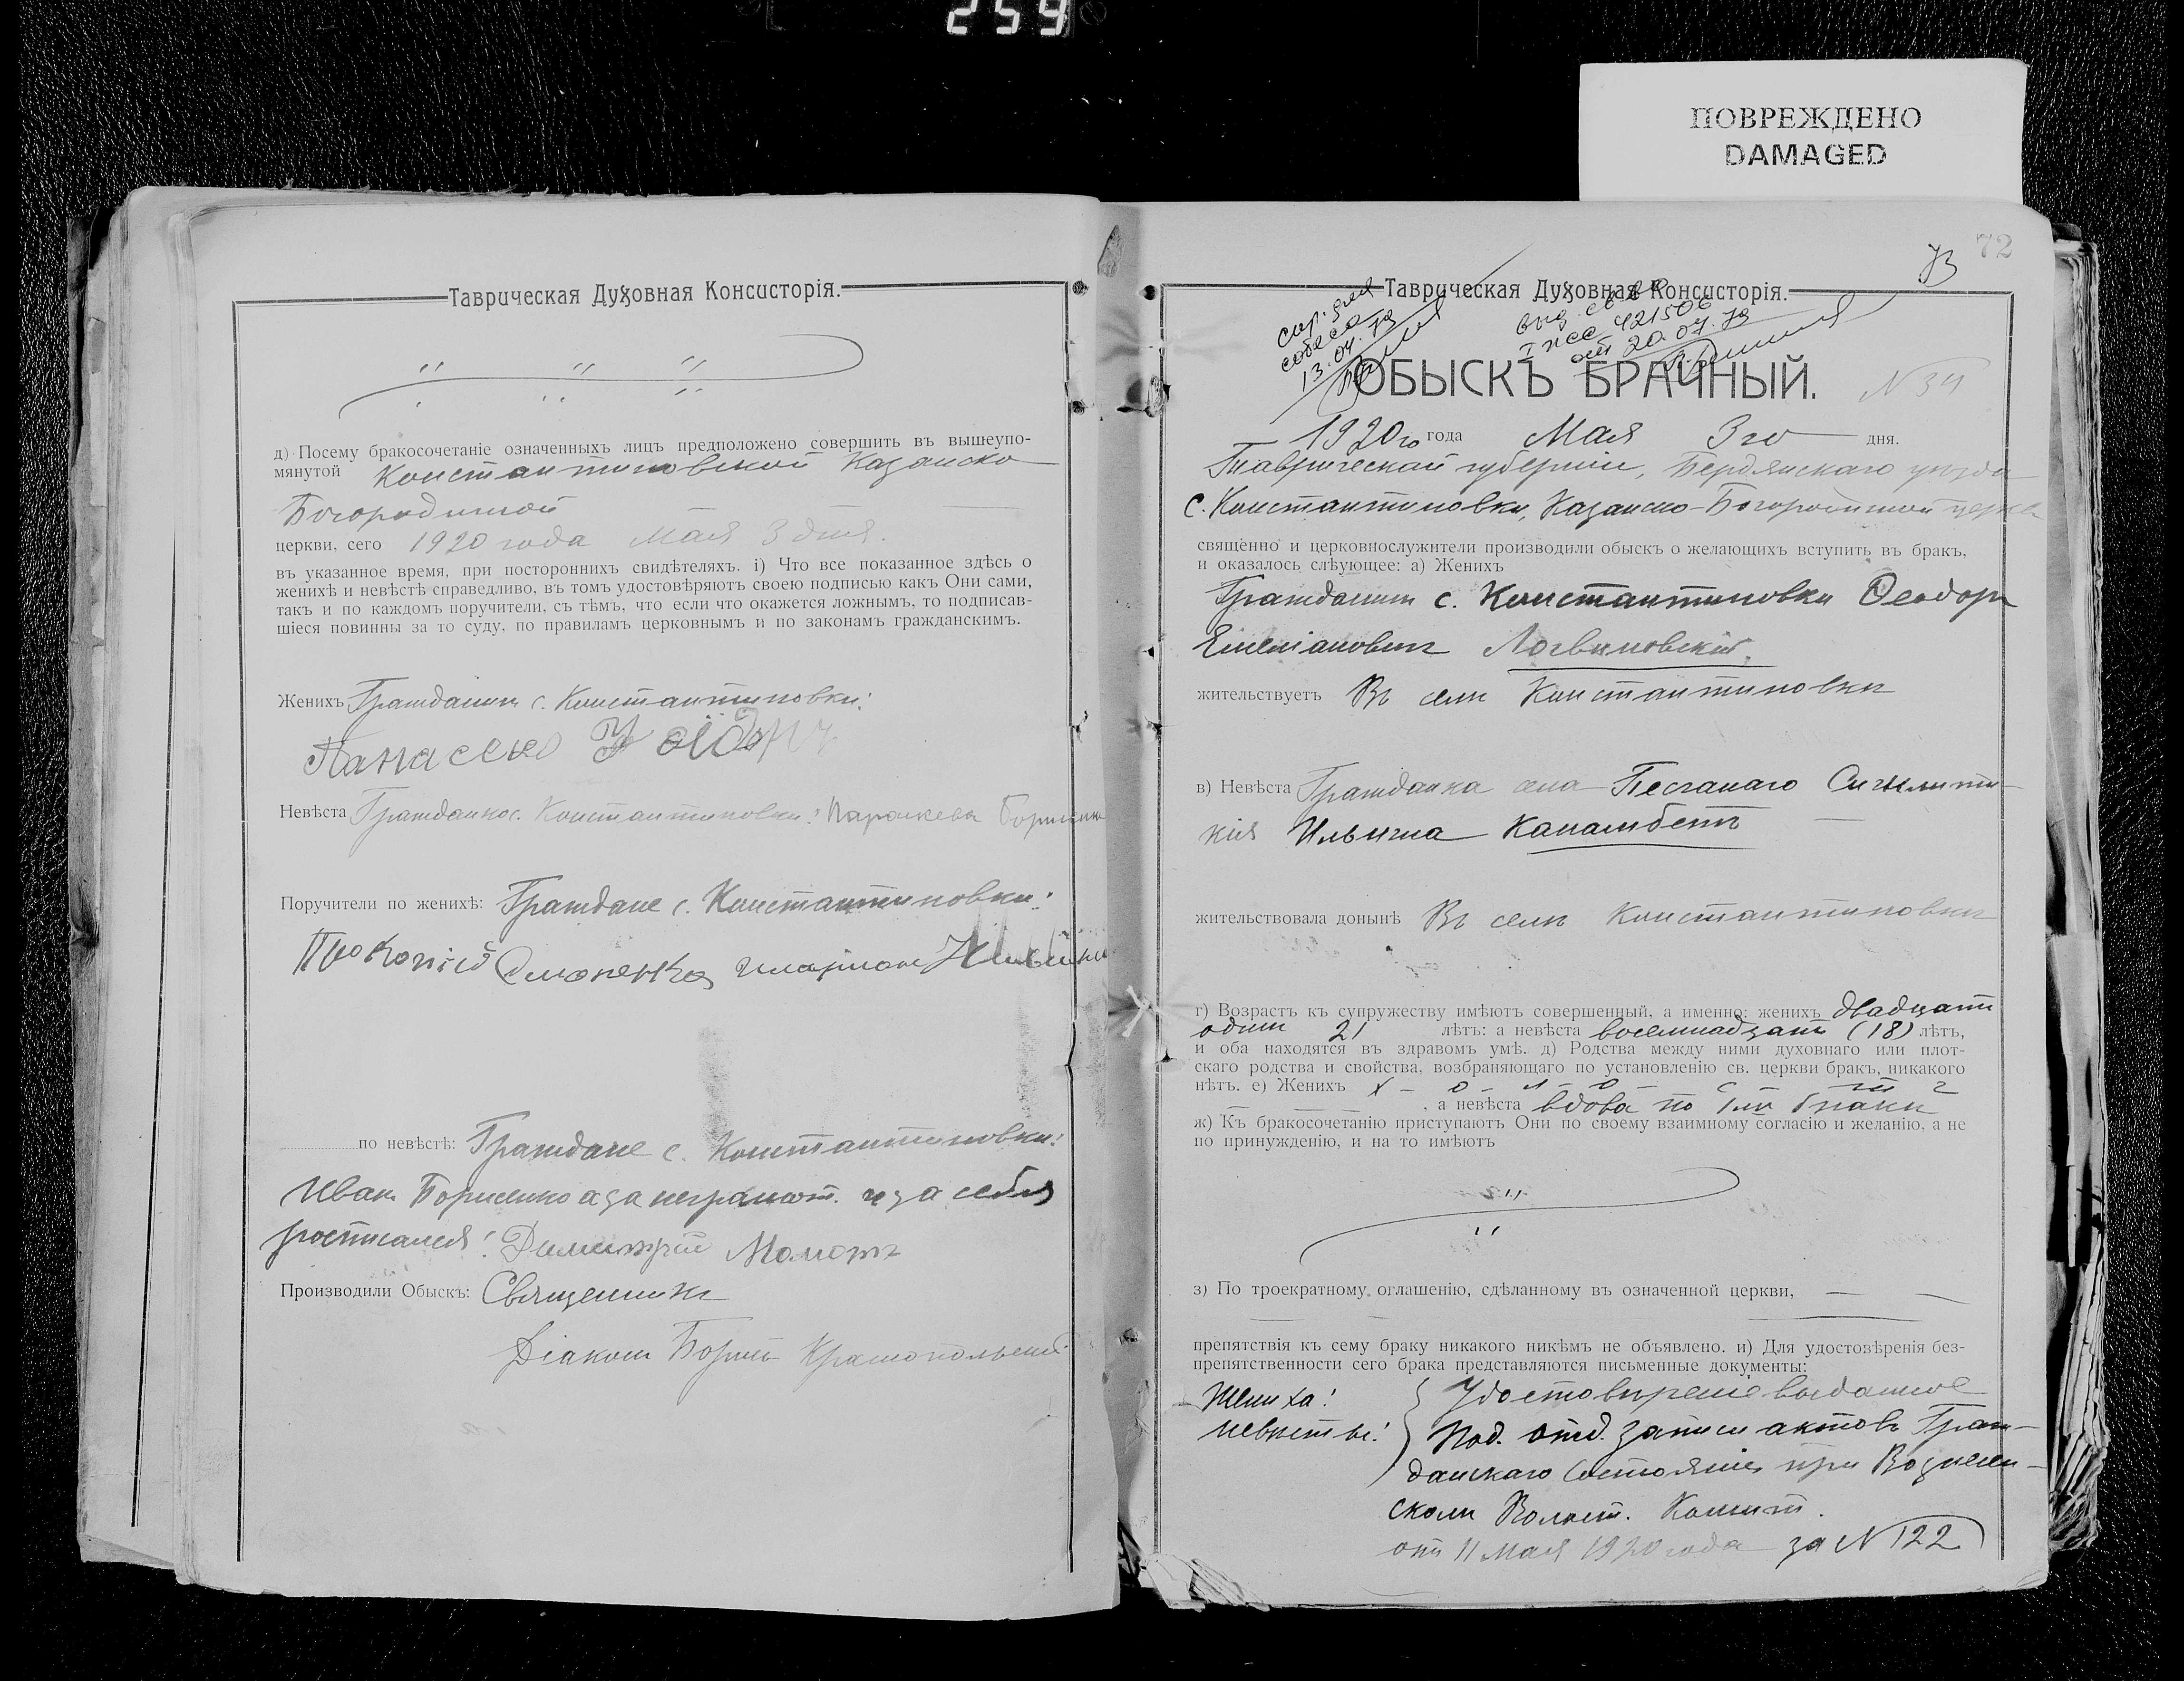 259
ПОВРЕЖДЕНО
DAMAGED
Таврическая Духовная Консисторія.
д) Посему бракосочетаніе означенныхъ лицъ предположено совершить въ вышеупо-
мянутой Константиновской Казанско
Богородичной
церкви, сего 1920 года Мая 3 дня.
въ указанное время, при постороннихъ свидѣтеляхъ. і) Что все показанное здѣсь о
женихѣ и невѣстѣ справедливо, въ томъ удостовѣряютъ своею подписью какъ Они сами,
такъ и по каждомъ поручители, съ тѣмъ, что если что окажется ложнымъ, то подписав-
шіеся повинны за то суду, по правиламъ церковнымъ и по законамъ гражданскимъ.
Женихъ Гражданинъ с. Константиновки:
Невѣста Гражданка с. Константиновки: Параскева
Поручители по женихѣ: Граждане с. Константиновки:
Прокопій Иларіон
по невѣстѣ: Граждане с. Константиновки:
Иван Борисенко а за неграмот. и за себя
росписался: Димитрій Момотъ
Производили Обыскъ: Священникъ
Діаконъ Борисъ Краснопольскій
72
73
Таврическая Духовная Консисторія.
13.04.79
421506
20.04.79
ОБЫСКЪ БРАЧНЫЙ. N 34
1920го года Мая 3го дня.
Таврической губерніи, Бердянскаго уѣзда
с. Константиновки, Казанско-Богородичной церкви
священно и церковнослужители производили обыскъ о желающихъ вступить въ бракъ,
и оказалось слѣующее: а) Женихъ
Гражданинъ с. Константиновки Ѳеодоръ
Емеліановичъ Логвиновскій
жительствуетъ Въ селѣ Константиновкѣ
в) Невѣста Гражданка села Песчанаго Сигклити-
кія Ильична Канамбетъ
жительствовала донынѣ Въ селѣ Константиновкѣ
г) Возрастъ къ супружеству имѣютъ совершенный, а именно: женихъ двадцать
одинъ 21 лѣтъ: а невѣста восемнадцать (18) лѣтъ,
и оба находятся въ здравомъ умѣ. д) Родства между ними духовнаго или плот-
скаго родства и свойства, возбраняющаго по установленію св. церкви бракъ, никакого
нѣтъ. е) Женихъ х-о-л-о-с-т-ъ
, а невѣста вдова по 1мъ бракѣ
ж) Къ бракосочетанію приступаютъ Они по своему взаимному согласію и желанію, а не
по принужденію, и на то имѣютъ
з) По троекратному оглашенію, сдѣланному въ означенной церкви,
препятствія къ сему браку никакого никѣмъ не объявлено. и) Для удостовѣренія без-
препятственности сего брака представляются письменные документы:
Жениха: } Удостовѣреніе выданное
невѣсты: Под. отд. записи актовъ Граж-
данскаго Состоянія при Вознесен-
скомъ Волост. Комит.
отъ 11 Мая 1920 года за N 122